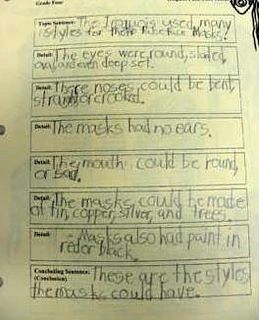 Grade Four
Topic Sentence: The Iroquois used many
styles for their False Face Masks.
Detail: The eyes were round, slanted,
oval, and even deep set.
Detail: There noses could be bent,
straight or crooked.
Detail: The masks had no ears.
Detail: The mouth could be round,
or
Detail: The masks could be made
of tin, copper, silver, and trees.
Detail: Masks also had paint in
red or black.
Concluding Sentence: These are the styles
(Conclusion)
the masks could have.